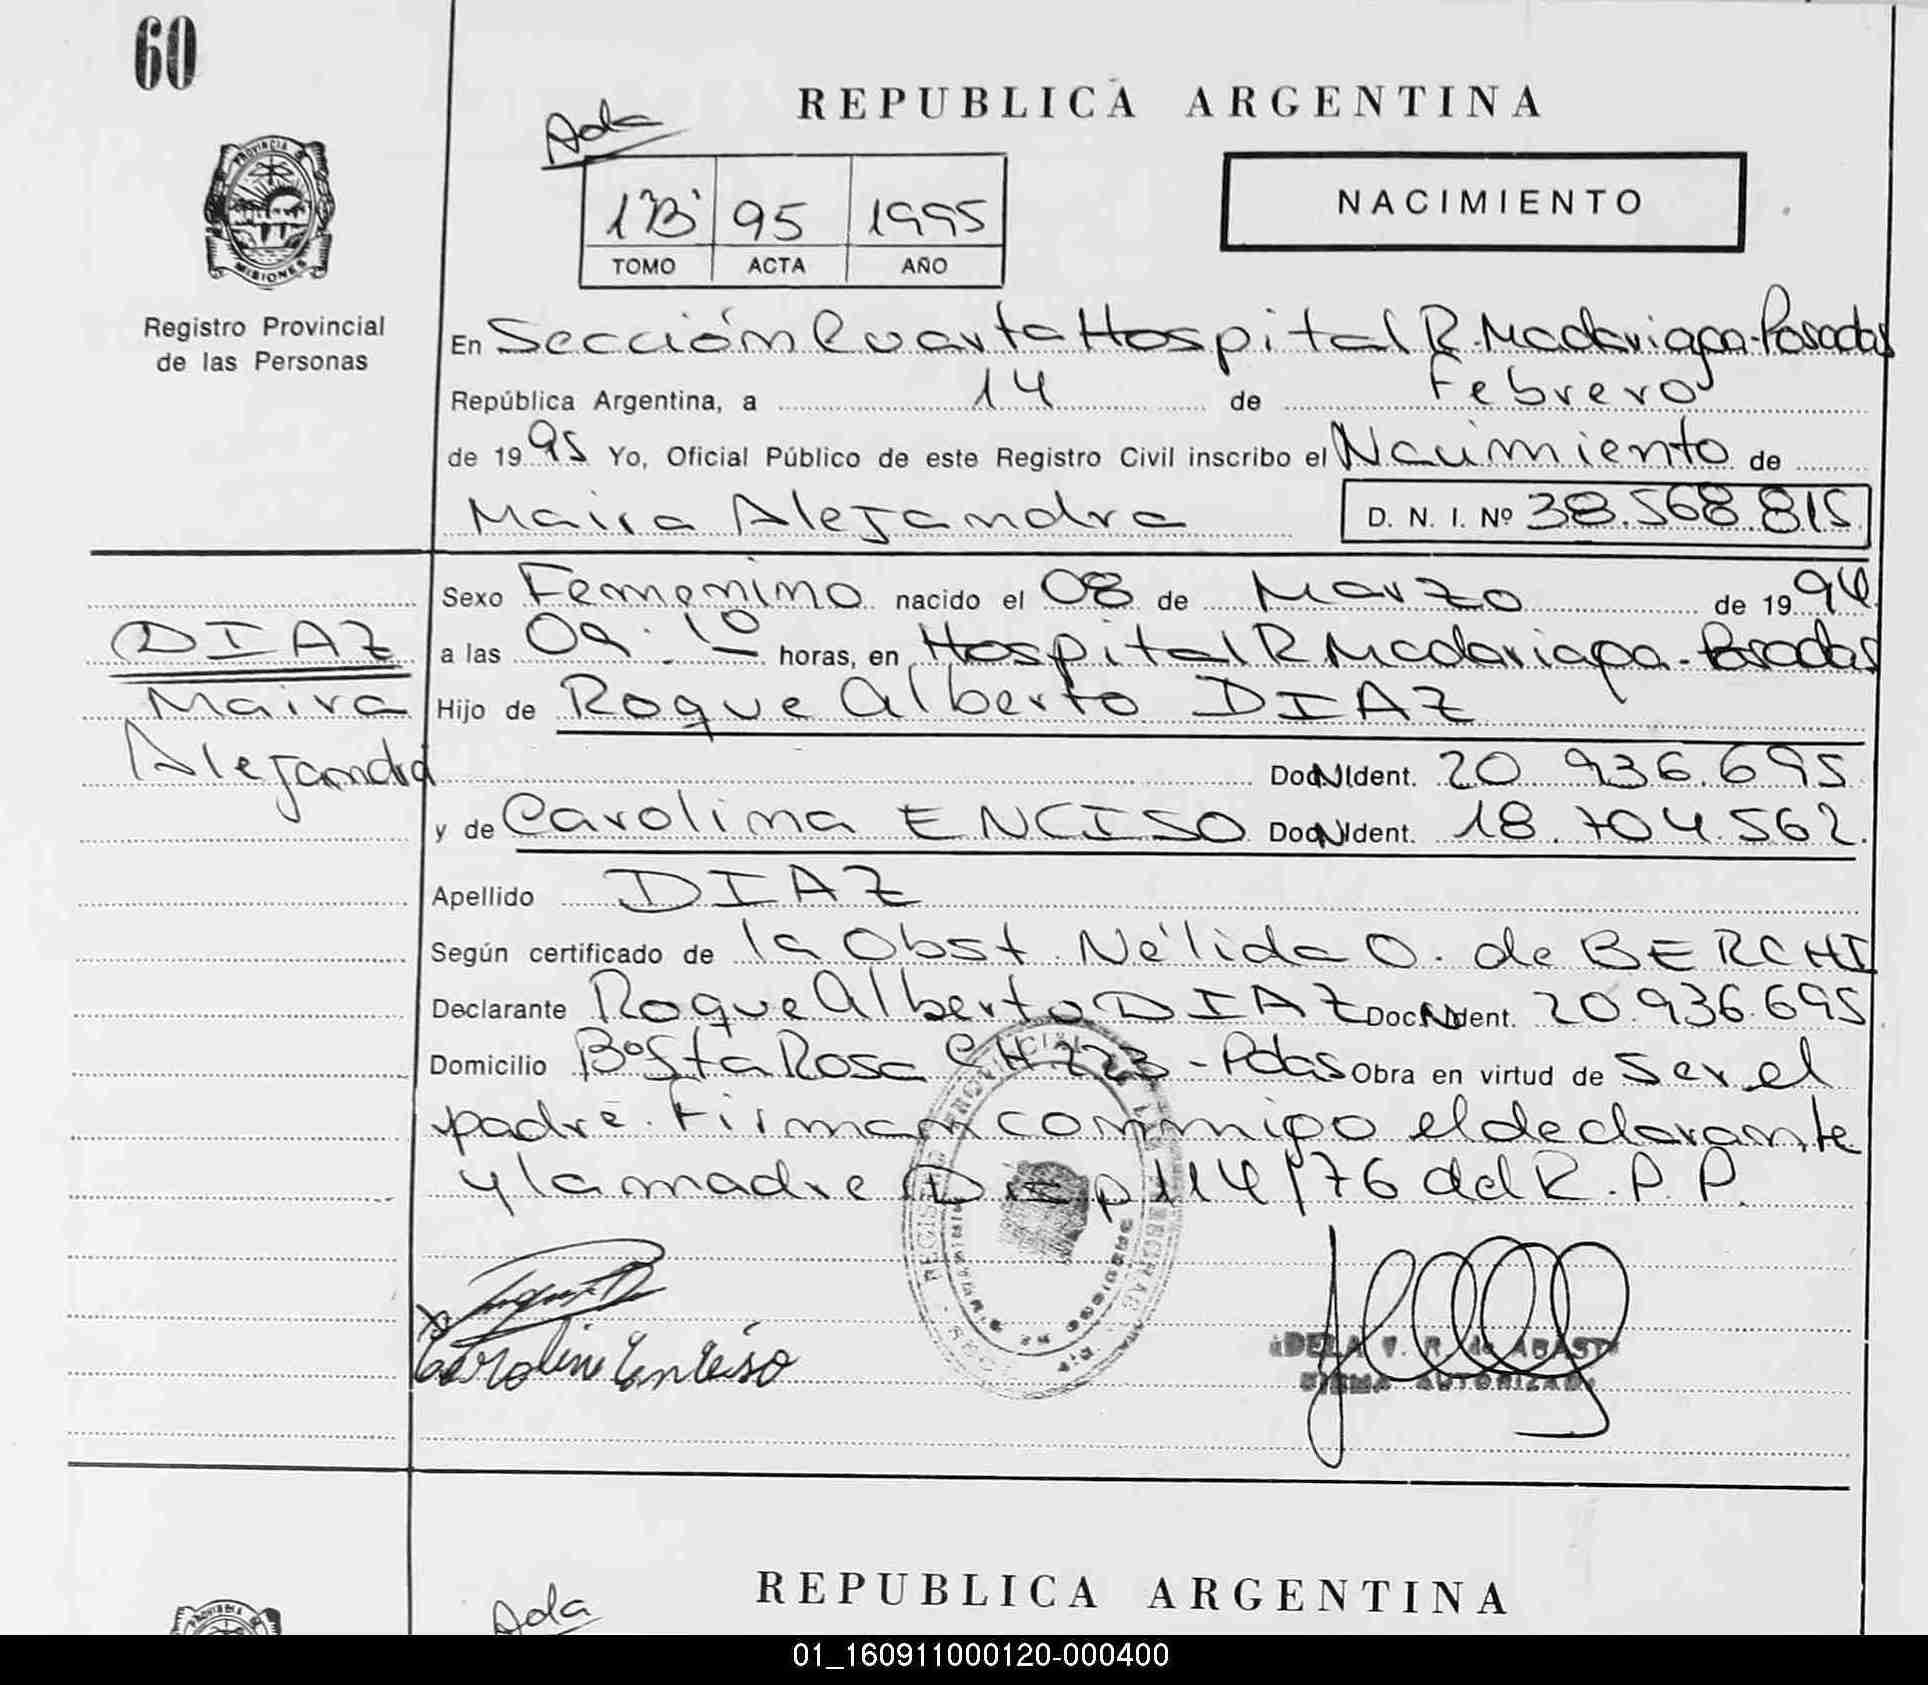 60
REPUBLICA ARGENTINA
Ada
1B 95 1995
TOMO ACTA AÑO
NACIMIENTO
PROVINCIA
MISIONES
Registro Provincial
de las Personas
En Sección Cuarta Hospital R. Madariaga-Posadas
República Argentina, a 14 de Febrero
de 1995 Yo, Oficial Público de este Registro Civil inscribo el Nacimiento de
Maira Alejandra D. N. I. Nº 38.568.815
Sexo Femenino nacido el 08 de Marzo de 1994
DIAZ
Maira
Alejandra
a las 09.10 horas, en Hospital R Madariaga-Posadas
Hijo de Roque Alberto DIAZ
Doc.N.Ident. 20.936.695
y de Carolina ENCISO Doc.N.Ident. 18.704.562.
Apellido DIAZ
Según certificado de la Obst. Nélida O. de BERCHI
Declarante Roque Alberto DIAZ Doc.N.Ident. 20.936.695
Domicilio Bº Sta Rosa CH 223 - Pdas Obra en virtud de ser el
padre. Firman conmigo el declarante
y la madre Disp 114/76 del R.P.P.
Carolina Enciso
FIRMA AUTORIZADA
REPUBLICA ARGENTINA
Ada
01_160911000120-000400